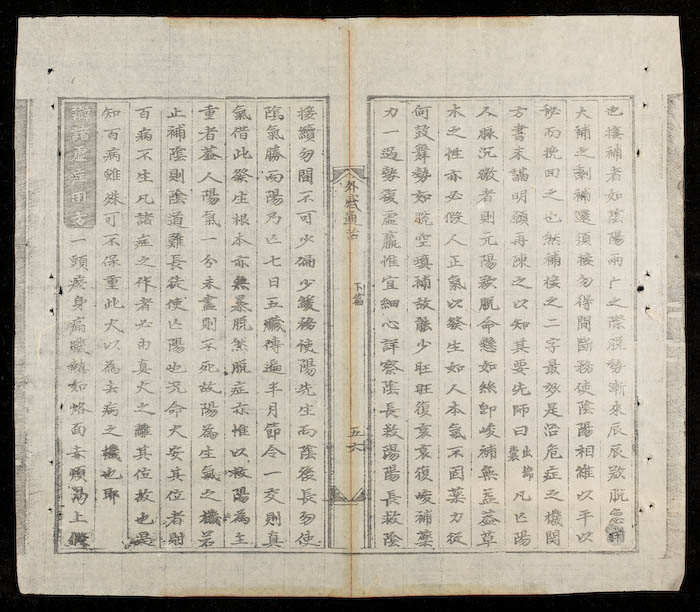 也接補者如陰陽兩亡之際脫勢漸來辰辰欲脫急
大補之劑補還須接勿得間斷務使陰陽相維以平以
秘而挽回之也然補接之二字最妙是治危症之機関
方書未講明願再陳之以知其要先師曰 凡亡陽
人脉沉微者則元陽欲脫命懸如絲卽峻補無益蓋草
木之性亦必假人正氣以發生如人本氣不固藥力從
何鼓舞勢如脫空填補故雖少旺旺復衰衰復峻補藥
力一過勢復虛羸惟宜細心詳察陰長救陽陽長救陰
外感通治
下篇
五六
接續勿間不可少偏少緩務使陽先生而陰後長勿使
陰氣勝而陽乃亡七日五臟傳遍半月節令一交則真
氣借此發生根本亦無暴脫然脫症亦惟以救陽為主
重者蓋人陽氣一分未盡則不死故陽為生氣之機若
止補陰則陰道難長徒使亡陽也況命火安其位者則
百病不生凡諸症之作者必由真火之離其位故也是
知百病雖殊可不保重此火以為去病之機也耶
諸症 用方 一頭疼身痛 面 上